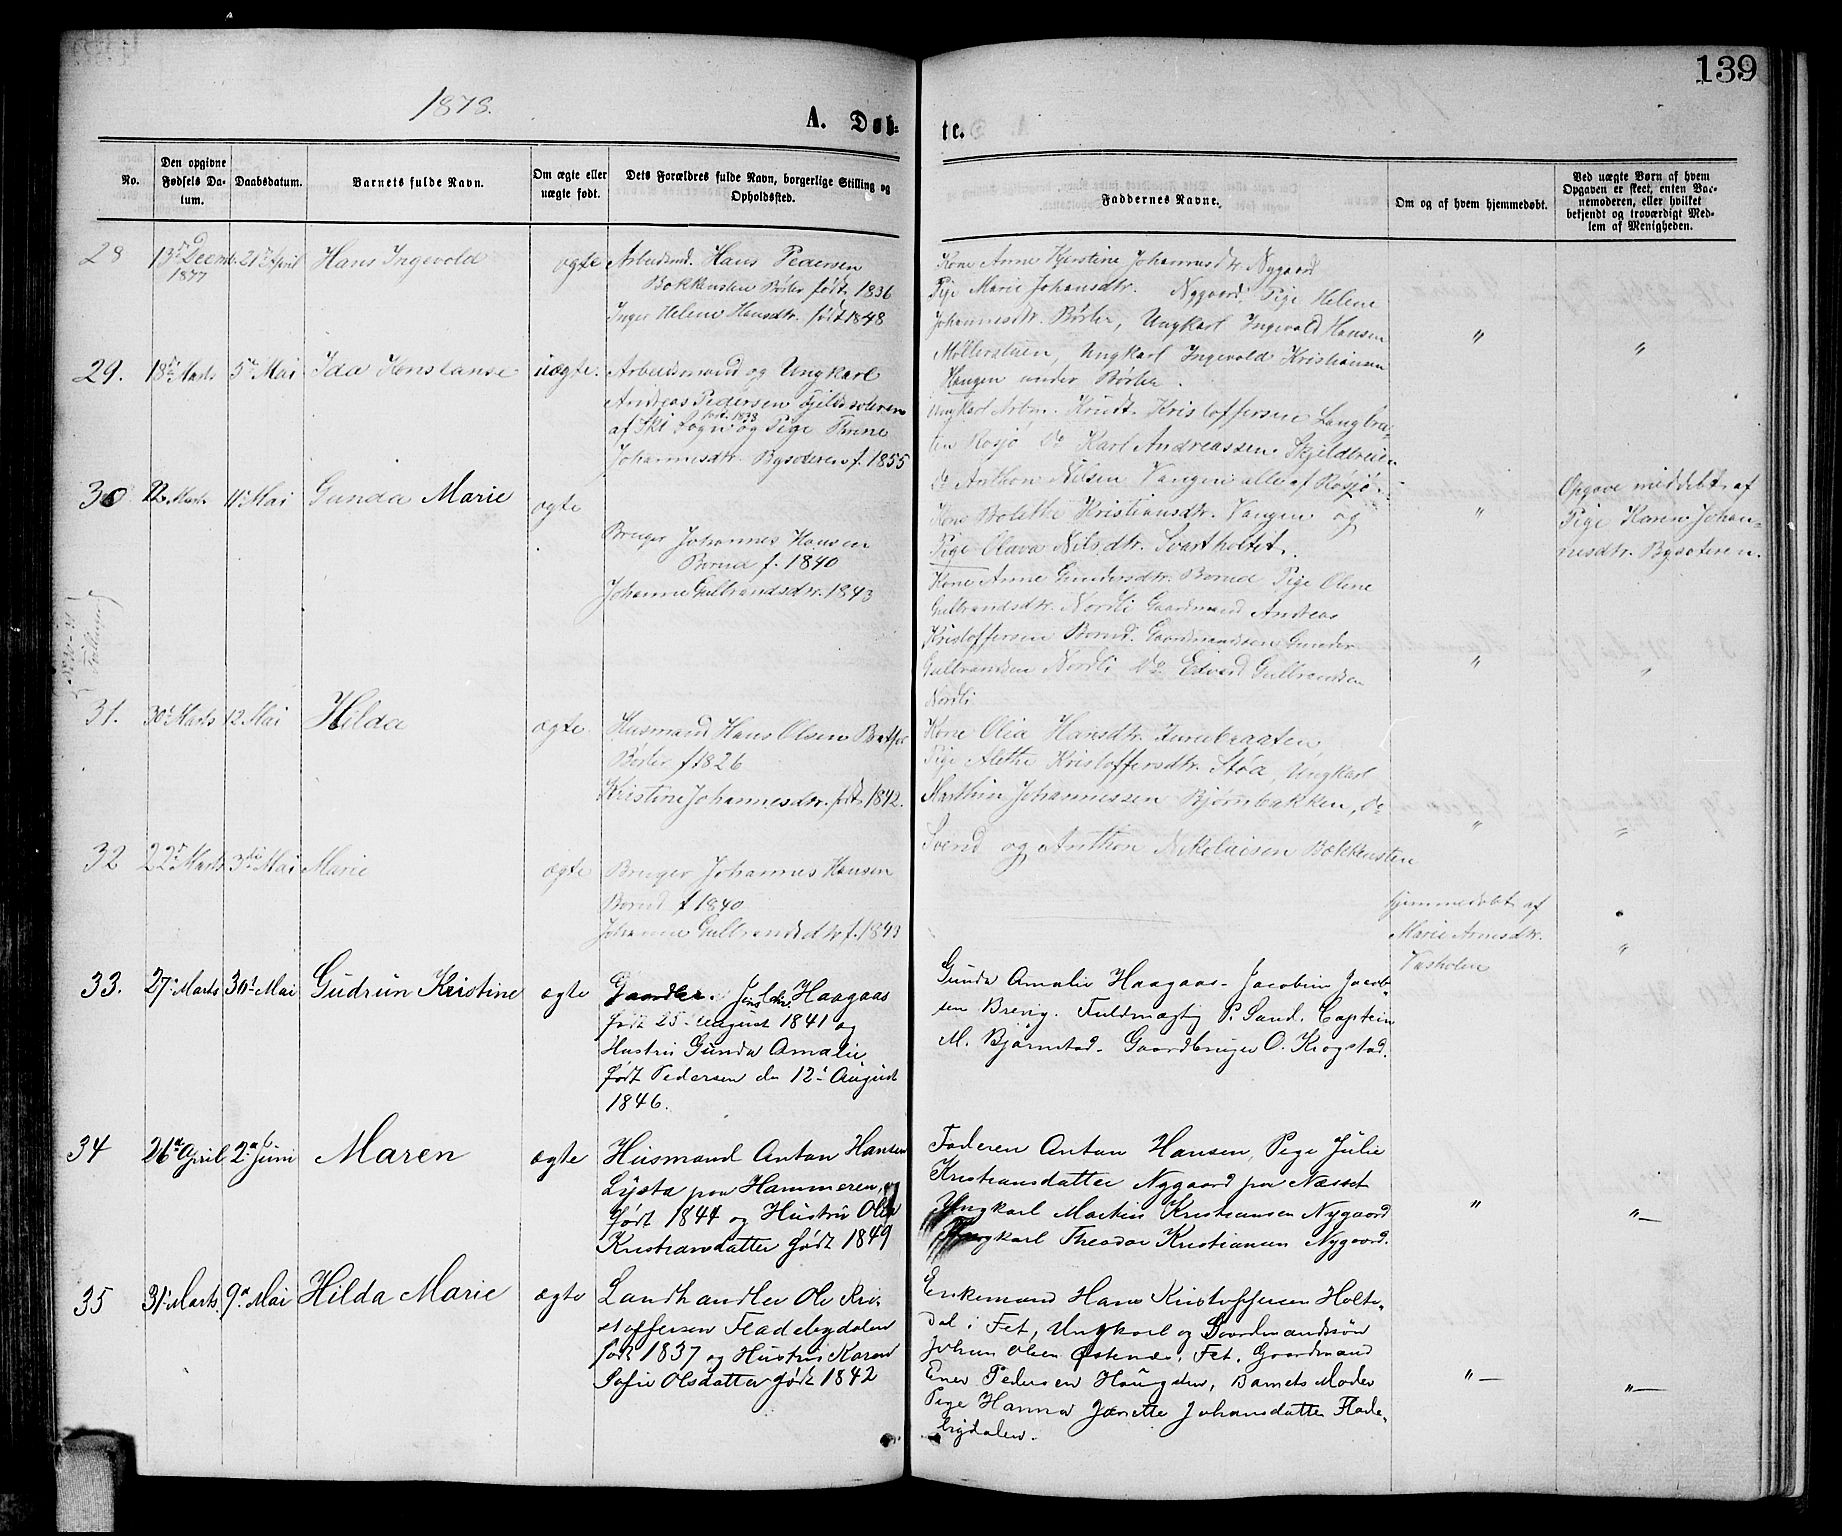 139
1878.
A. Døb-
te.
No.
Den opgivne Fødsels Da-tum.
Daabsdatum.
Barnets fulde Navn.
Om ægte eller uægte født.
Dets Forældres fulde Navn, borgerlige Stilling og Opholdssted.
Faddernes Navne.
Om og af hvem hjemmedøbt.
Ved uægte Børn af hvem Opgaven er skeet, enten Bar-nemoderen, eller hvilket bekjendt og troværdigt Med-lem af Menigheden.
28
13de Decmb. 1877
21de April
Hans Ingevold
ægte
Arbeidsmd. Hans Pedersen
Bokkensten Børter født 1836
Inger Helene Hansdtr. født 1848
Kone Anne Kjerstine Johannesdtr. Nygaard
Pige Marie Johansdtr. Nygaard, Pige Helene
Johannesdtr. Børter, Ungkarl Ingevold Hansen
Møllerstuen, Ungkarl Ingevold Kristiansen
Haugen under Børter.
"
"
29.
18de Marts
5te Mai
Ida Konstanse
uægte.
Arbeidsmand og Ungkarl
Andreas Pedersen
af Ski Sogn født 1838 og Pige Thrine
Johannesdtr. Bysoteren f. 1855
Ungkarl Arbm. Knudt Kristoffersen Langbraa-
ten Rosjø Do Karl Andreassen
Do Anthon Nilsen Vangen alle af Rosjø.
Kone Bolette Kristiansdtr. Vangen og
Pige Olava Nilsdtr. Svartholtet.
"
Opgave meddelt af
Pige Karen Johan-
nesdtr. Bysoteren.
30
22 Marts
11 Mai
Gunda Marie
ægte
Bruger Johannes Hansen
Borud f. 1840
Johanne Gulbrandsdtr. 1843
Kone Anne Gundersdtr. Borud Pige Oline
Gulbrandsdtr. Nordli Gaardmand Andreas
Kristoffersen Borud. Gaardmandssøn Gunder
Gulbrandsen Nordli Do Edvard Gulbrandsen
Nordli
"
"
No 32
Tvillinger
31.
30 Marts
12 Mai
Hilda
ægte.
Husmand Hans Olsen
Børter f 1826
Kristine Johannesdtr. født 1842.
Kone Olia Hansdtr. Furubraaten
Pige Alethe Kristoffersdtr. Støa, Ungkarl
Marthin Johannessen Bjørnbakken, Do
Svend og Anthon Nikolaisen Bokkensten
"
"
32
22de Marts
3die Mai
Marie
ægte
Bruger Johannes Hansen
Borud f 1840
Johanne Gulbrandsdtr f. 1843
Hjemmedøbt af
Marie Arnesdtr.
Vasholen
"
33.
27. Marts
30. Mai
Gudrun Kristine
ægte
Haagaas
født 25. August 1841 og
Hustru Gunda Amalie
født Pedersen den 12. August
1846.
Gunda Amalie Haagaas. Jacobine Jacob-
sen Brevig. Fuldmægtig P. Sand. Captein
M. Bjørnstad. Gaardbruger O. Krogstad.
34
26de April
2den Juni
Maren
ægte
Husmand Anton Hansen
Lysta paa Hammeren,
født 1844 og Hustru Olia
Kristiansdatter født 1849
Faderen Anton Hansen, Pige Julie
Kristiansdatter Nygaard paa Næsset
Ungkarl Martin Kristiansen Nygaard
Ungkarl Theodor Kristiansen Nygaard.
"
"—
35
31. Marts.
9de Mai
Hilda Marie
ægte
Landhandler Ole Kri-
stoffersen Fladebydalen
født 1837 og Hustru Karen
Sofie Olsdatter født 1842
Enkemand Hans Kristoffersen Holte-
dal i Fet, Ungkarl og Gaardmandssøn
Johan Olsen Østenes, Fet. Gaardmand
Ener Pedersen Haugden, Barnets Moder
Pige Hanna Janette Johansdatter Flade-
bydalen.
"—
"—